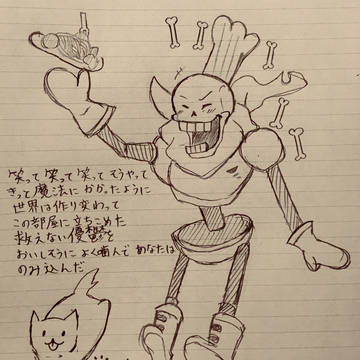 笑って 笑って 笑って そうやって
きって 魔法に かかったように
世界は作り変わって
この部屋に立ちこめた
救えない憂鬱を
おいしそうに よく噛んで あなたは
のみ込んだ